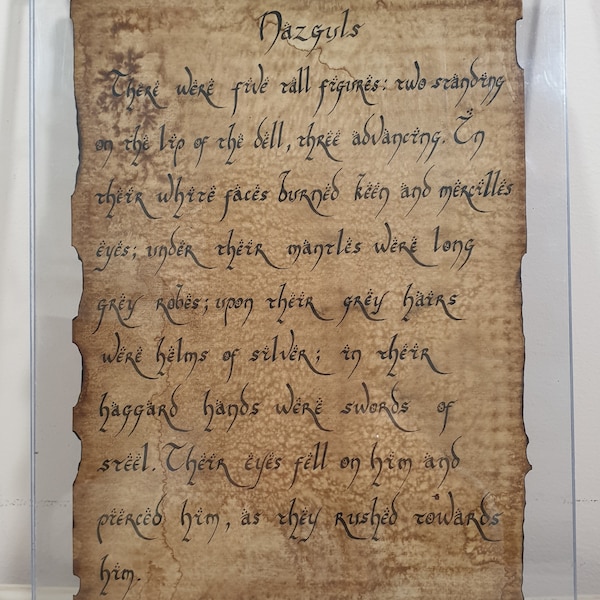 Nazguls
There were five tall figures: two standing
on the lip of the dell, three advancing. In
their white faces burned keen and mercilles
eyes; under their mantles were long
grey robes; upon their grey hairs
were helms of silver; in their
haggard hands were swords of
steel. Their eyes fell on him and
pierced him, as they rushed towards
him.